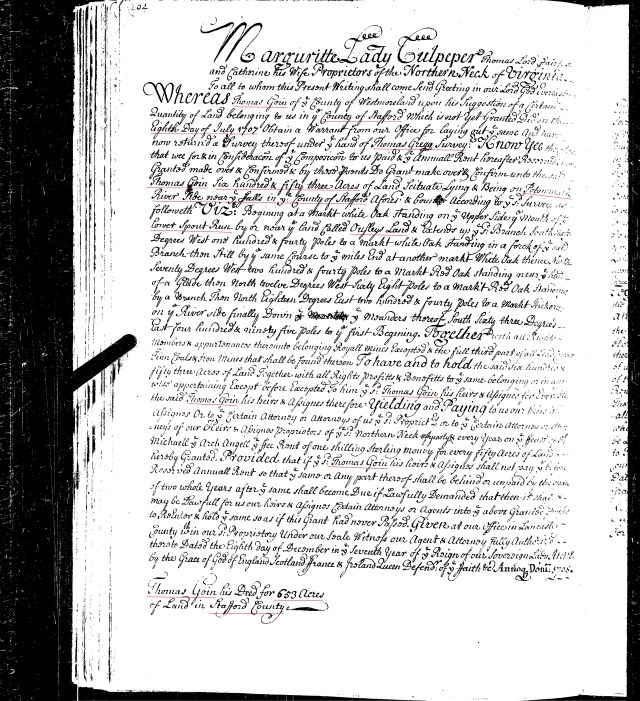 204
Marguritte Lady Culpeper Thomas Lord Fairfax
and Catherine his Wife Proprietors of the Northern Neck of Virginia
To all to whom this Present Writing shall come Send Greeting in our Lord God Everlasting
Whereas Thomas Goin of ye County of Westmoreland upon his Suggestion of a Certain
Quantity of Land belonging to us in ye County of Stafford Which is not Yet Granted Did on the
Eighth Day of July 1707 Obtain a Warrant from our Office for Laying out ye same And hav
now return'd a Survey thereof under ye hand of Thomas Gregg Survey: Know Yee
that wee for & in Consideracon of ye Composicon to us Paid & ye Annuall Rent hereafter Reserved
Granted made over & Confirmed & by these Prsents Do Grant make over & Confirm unto the said
Thomas Goin Six hundred & fifty three Acres of Land Scituate Lying & Being on Potomack
River Side near ye falls in ye County of Stafford Afores: & bou According to ye Survey as
followeth Viz: Begining at a Markt white Oak Standing on ye Upper Side ye Mouth of ye
lower Spout Run by or near ye land Called Ousley Land & Extends up ye Branch South
Degrees West one hundred & fourty Poles to a markt white Oak Standing in a fork of ye said
Branch then Still by ye same Course to ye miles End at another markt White Oak thence
Seventy Degrees West two hundred & fourty Poles to a Markt Red Oak standing near ye
of a Glade then North twelve Degrees West Sixty Eight Poles to a Markt Red Oak Standing
by a Branch Then North Eighteen Degrees East two hundred & fourty Poles to a Markt Hickory
on ye River side finally Down ye Meanders thereof South Sixty three Degrees
East four hundred & ninty five Poles to ye first Begining. Together with all
Members & appurtenances thereunto belonging Royall mines Excepted & the full third part of all
Tinn Coals & Iron Mines that shall be found thereon To have and to hold the said Six hundred &
fifty three Acres of Land Together with all Rights Profitts & Benefitts to ye same belonging or in any
wise appertaining Except before Excepted To him ye sd Thomas Goin his heirs & Assignes for Ever
the said Thomas Goin his heirs & Assignes therefore Yielding and Paying to us our heirs &
Assignes Or to ye Certain Attorney or Attorneys of us ye sd Propriet: or to ye Certain Attorney or Attor
neys of our Heirs & Assignes Proprietors of ye sd Northern Neck Yearly & every Year on ye ffeast of St
Michaell ye Arch Angell ye ffee Rent of one shilling Sterling money for every fifty Acres of Land
hereby Granted. Provided that if ye sd Thomas Goin his heirs & Assignes shall not pay ye before
Reserved Annuall Rent so that ye same or Any part thereof shall be behind or unpaid by the space
of two whole Years after ye same shall become Due if Lawfully Demanded that then it shall
may be Lawfull for us our heirs & Assignes Certain Attorneys or Agents into ye above Granted
to Reenter & hold ye same so as if this Grant had never Passed. Given at our Office in Lancaster
County within our sd Proprietory Under our Seale Witness our Agent & Attorney Fully Authorized
thereto Dated the Eighth Day of December in ye Seventh Year of ye Reign of our Sovereign Lady Anne
by the Grace of God of England Scotland France & Ireland Queen Defendr of ye Faith &c Annoq Domi: 1708
Thomas Goin his Deed for 653 Acres
of Land in Stafford County